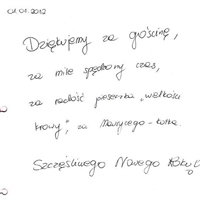 01.01.2012
Dziękujemy za gościnę,
za mile spędzony czas,
za radość pieseczka „wielkości
krowy”, za Maurycego - kotka.
Szczęśliwego Nowego Roku